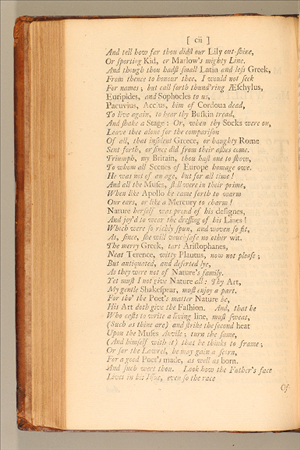 [ cii ]
And tell how far thou didst our Lily out shine,
Or sporting Kid, or Marlow's mighty Line.
And though thou hadst small Latin and less Greek,
From thence to honour thee, I would not seek
For names; but call forth thund'ring Æschylus,
Euripides, and Sophocles to us,
Pacuvius, Accius, him of Cordoua dead,
To live again, to hear thy Buskin tread,
And shake a Stage: Or, when thy Socks were on,
Leave thee alone for the comparison
Of all, that insolent Greece, or haughty Rome
Sent forth, or since did from their ashes come.
Triumph, my Britain, thou hast one to show,
To whom all Scenes of Europe homage owe.
He was not of an age, but for all time!
And all the Muses, still were in their prime,
When like Apollo he came forth to warm
Our ears, or like a Mercury to charm!
Nature herself was proud of his designes,
And joy'd to wear the dressing of his Lines!
Which were so richly spun, and woven so fit,
As, since, she will vouchsafe no other wit.
The merry Greek, tart Aristophanes,
Neat Terence, witty Plautus, now not please;
But antiquated, and deserted lye,
As they were not of Nature's family.
Yet must I not give Nature all: Thy Art,
My gentle Shakespear, must enjoy a part.
For tho' the Poet's matter Nature be,
His Art doth give the Fashion. And, that he
Who casts to write a living line, must sweat,
(Such as thine are) and strike the second heat
Upon the Muses Anvile; turn the same,
(And himself with it) that he thinks to frame;
Or for the Lawrel, he may gain a scorn,
For a good Poet's made, as well as born.
And such wert thou. Look how the Father's face
Lives in his Issue, even so the race
Of